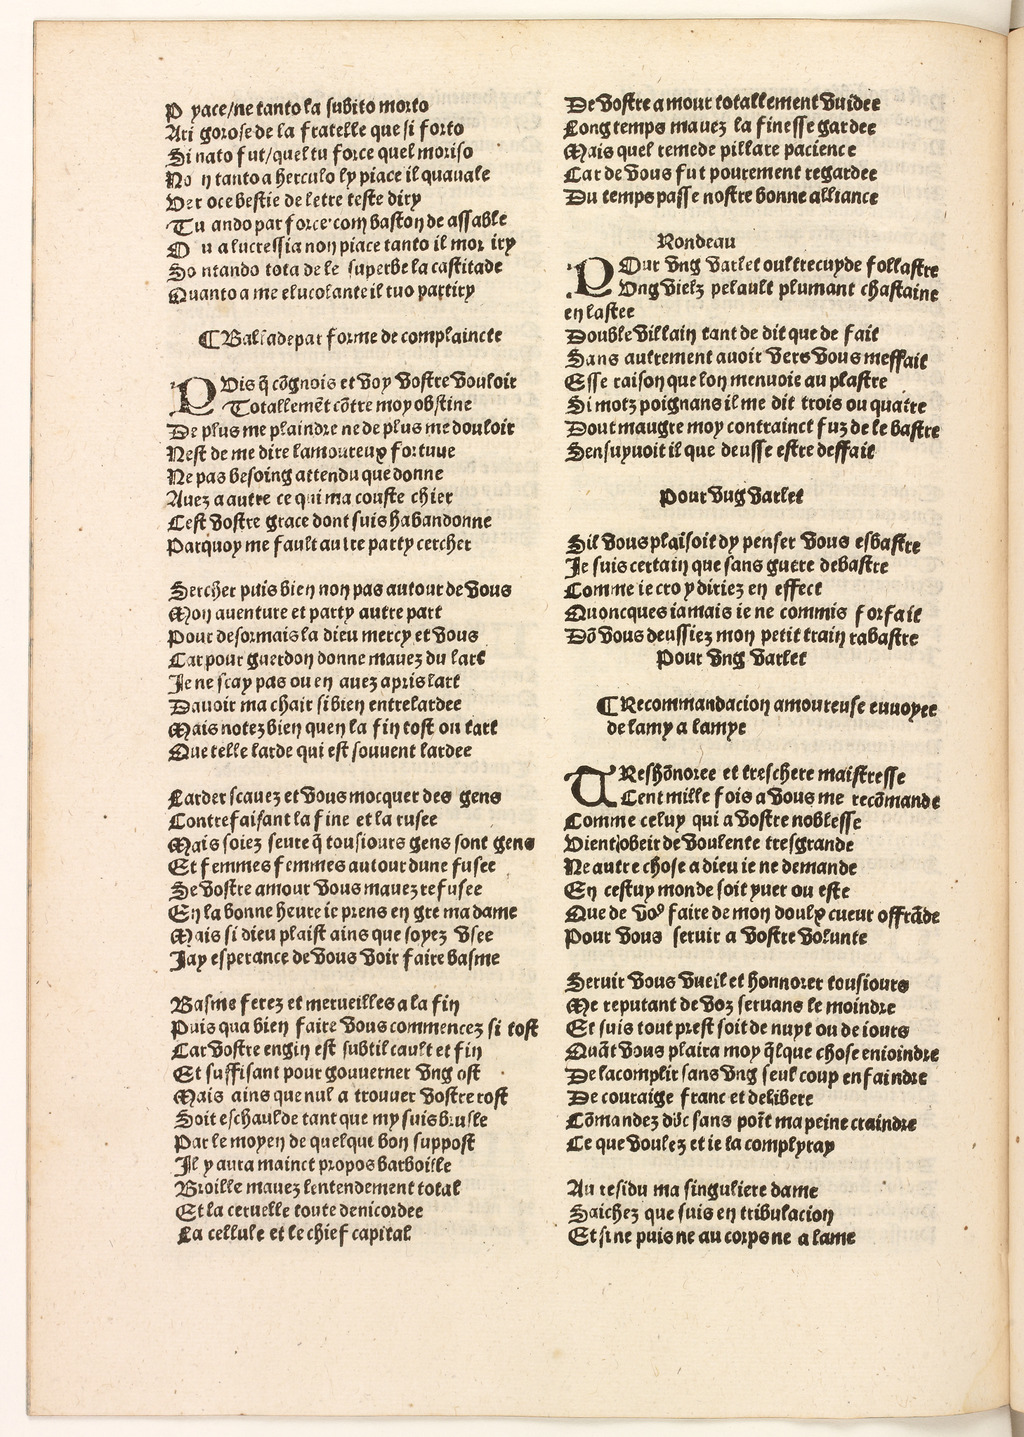 P yace/ne tanto la subito morto
Ari gorose de la fratelle que si forto
Si nato fut/quel tu force quel moriso
No n tanto a herculo ly piace il quauale
Ver oce bestie de letre teste diry
Tu ando par force com baston de assable
O u a lucressia non piace tanto il mor iry
So ntando tota de le superbe la castitade
Quanto a me elucolante il tuo partiry
¶ Balladepar forme de complaincte
PVis q̄ cōgnois et voy vostre vouloir
Totallemēt cōtre moy obstine
De plus me plaindre ne de plus me douloir
Nest de me dire lamoureux fortune
Ne pas besoing attendu que donne
Auez a autre ce qui ma couste chier
Cest vostre grace dont suis habandonne
Parquoy me fault aultre party cercher
Sercher puis bien non pas autour de vous
Mon auenture et party autre part
Pour desormais la dieu mercy et vous
Car pour guerdon donne mauez du lart
Je ne scay pas ou en auez apris lart
Dauoir ma chair si bien entrelardee
Mais notez bien quen la fin tost ou tart
Que telle larde qui est souuent lardee
Larder scauez et vous mocquer des gens
Contrefaisant la fine et la rusee
Mais soiez seure q̄ tousiours gens sont gens
Et femmes femmes autour dune fusee
Se vostre amour vous mauez refusee
En la bonne heure ie prens en gre ma dame
Mais si dieu plaist ains que soyez vsee
Jay esperance de vous voir faire basme
Basme ferez et merueilles a la fin
Puis qua bien faire vous commencez si tost
Car vostre engin est subtil cault et fin
Et suffisant pour gouuerner vng ost
Mais ains que nul a trouuer vostre rost
Soit eschaulde tant que my suis brusle
Par le moyen de quelque bon suppost
Il y aura mainct propos barboille
Broille mauez lentendement total
Et la ceruelle toute denicordee
La cellule et le chief capital
De vostre amour totallement vuidee
Long temps mauez la finesse gardee
Mais quel remede pillare pacience
Car de vous fut pourement regardee
Du temps passe nostre bonne alliance
Rondeau
POur vng varlet oultrecuyde follastre
Vng vielz pelault plumant chastaine
en lastee
Double villain tant de dit que de fait
Sans aultrement auoir vers vous meffait
Esse raison que lon menuoie au plastre
Si motz poignans il me dit trois ou quatre
Dont maugre moy contrainct fuz de le bastre
Sensuyuoit il que deusse estre deffait
Pour vug varlet
Sil vous plaisoit dy penser vous esbastre
Je suis certain que sans guere debastre
Comme ie croy diriez en effect
Quoncques iamais ie ne commis forfait
Dō vous deussiez mon petit train rabastre
Pour vng varlet
¶ Recommandacion amoureuse enuoyee
de lamy a lamye
TReshōnoree et treschere maistresse
Cent mille fois a vous me recōmande
Comme celuy qui a vostre noblesse
Vient obeir de voulente tresgrande
Ne autre chose a dieu ie ne demande
En cestuy monde soit yuer ou este
Que de voꝰ faire de mon doulx cueur offrāde
Pour vous seruir a vostre volunte
Seruir vous vueil et honnorer tousiours
Me reputant de voz seruans le moindre
Et suis tout prest soit de nuyt ou de iours
Quāt vous plaira moy q̄lque chose enioindre
De lacomplir sans vng seul coup enfaindre
De couraige franc et delibere
Cōmandez dōc sans poīt ma peine craindre
Ce que voulez et ie la complyray
Au residu ma singuliere dame
Saichez que suis en tribulacion
Et si ne puis ne au corps ne a lame